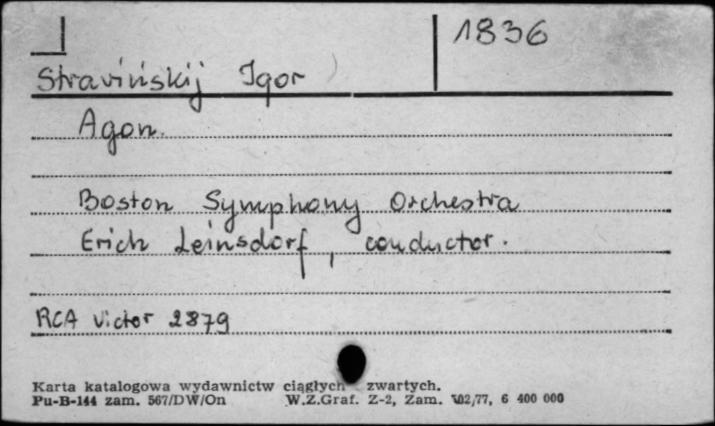 1836
Stravinskij Igor
Agon.
Boston Symphony Orchestra
Erich Leinsdorf, conductor.
RCA Victor 2879
Karta katalogowa wydawnictw ciągłych zwartych.
Pu-B-144 zam. 567/DW/On W.Z.Graf. Z-2, Zam. 102/77, 6 400 000